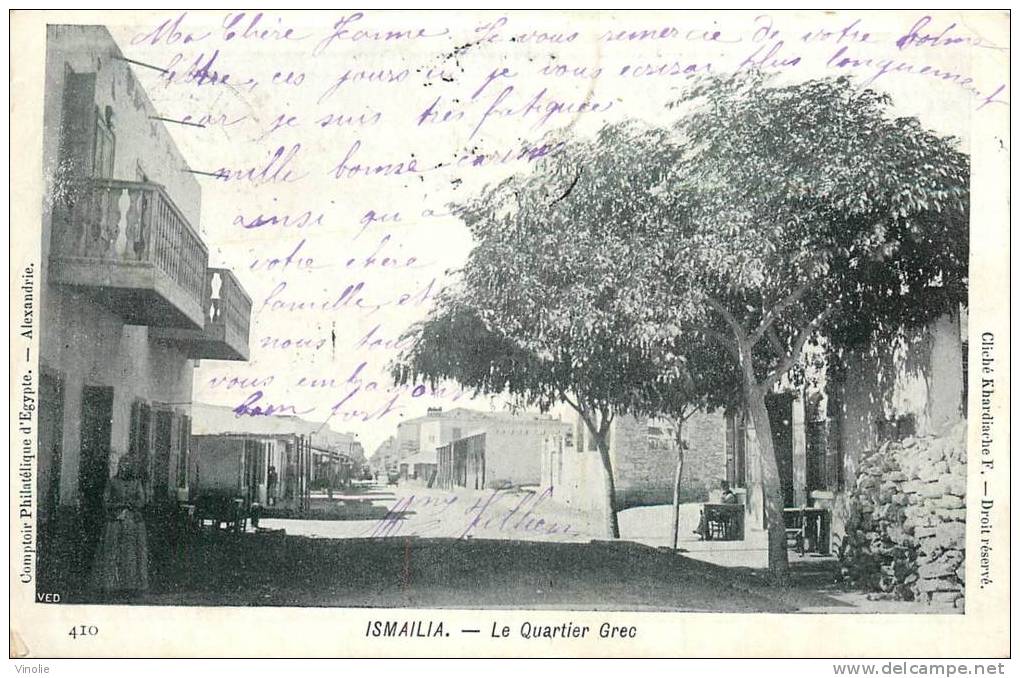 Ma Chère Jeanne. Je vous remercie de votre bonne
lettre, ces jours ci je vous écrirai plus longuement
car je suis très fatiguée
mille bonne
ainsi qu'à
votre chère
famille, et
nous tous
vous embrassons
bien fort
Comptoir Philatélique d'Egypte. — Alexandrie.
Cliché Khardiache F. — Droit réservé.
VED
410
ISMAILIA. — Le Quartier Grec
Vinolie
http://www.delcampe.net